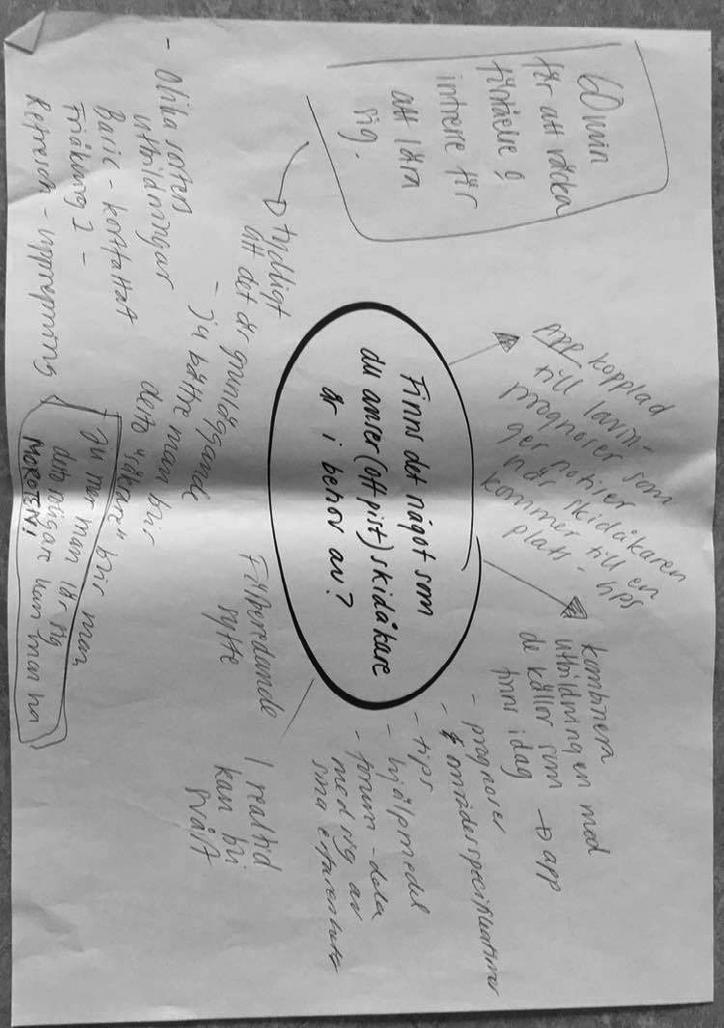 Finns det något som
du anser (off pist) skidåkare
är i behov av?
60 min
för att väcka
förståelse &
intresse för
att lära
sig.
tydligt
att det är grundläggande
- Ju bättre man blir
desto "säkrare" blir man
- Olika sorters
utbildningar
Basic - kortfattat
Friåkning 1 -
Refresh - upprepning
Ju mer man lär sig
desto roligare kan man ha
MOROTEN!
app kopplad
till lavin-
prognoser som
ger notiser
när skidåkaren
kommer till en
plats - tips
kombinera
utbildningen med
de källor som
finns idag → app
- prognoser
- & områdesspecifikationer
- tips
- hjälpmedel
- forum - dela
med sig av
sina erfarenheter
Förberedande
syfte
I realtid
kan bli
svårt